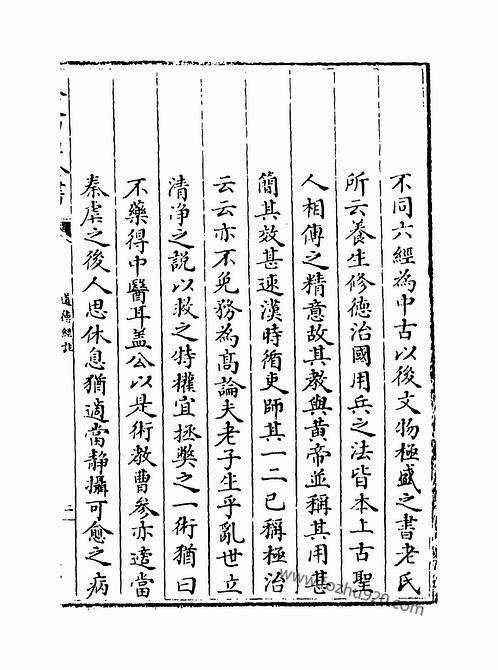 不同六經為中古以後文物極盛之書老氏
所云養生修德治國用兵之法皆本上古聖
人相傳之精意故其教與黃帝並稱其用甚
簡其效甚速漢時循吏師其一二已稱極治
云云亦不免務為髙論夫老子生乎亂世立
清浄之説以救之特權宜拯獘之一術猶曰
不藥得中醫耳盖公以是術教曹參亦適當
秦虐之後人思休息猶適當靜攝可愈之病
道德經註
二
www.fozhu920.com